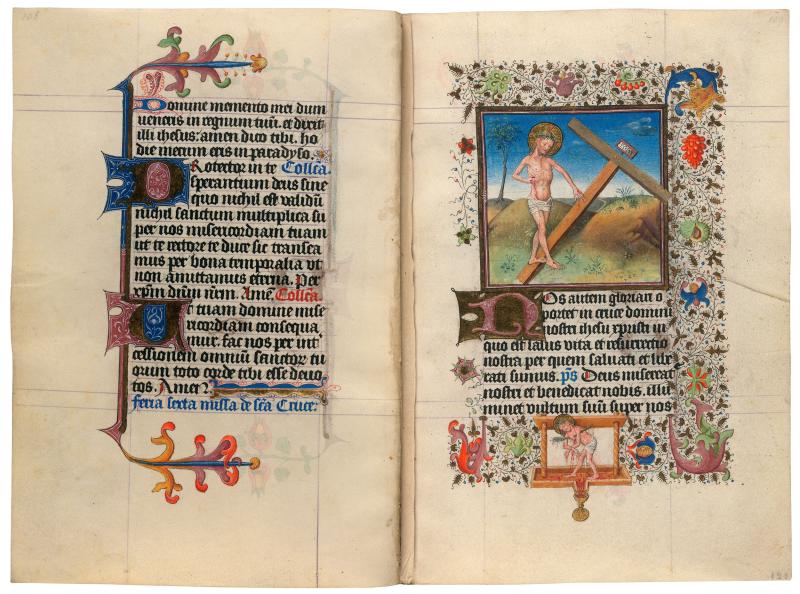 108
Domine memento mei dum
veneris in regnum tuū. et dixit
illi ihesus: amen dico tibi. ho
die mecum eris in paradyso.
Protector in te Collcā.
sperantium deus sine
quo nichil est validū
nichil sanctum multiplica su
per nos misericordiam tuam
ut te rectore te duce sic transea
mus per bona temporalia vt
non amittamus eterna. Per
xp̄m dn̄um nr̄m. Amē Collcā.
At tuam domine mise
ricordiam consequa
mur. fac nos per int
cessionem omniū sanctor tu
orum toto corde tibi esse devo
tos. Amen
feria sexta missa de sc̄a Cruce.
109
Nos autem gloriari o
portet in cruce domini
nostri ihesu xpristi in
quo est salus vita et resurrectio
nostra per quem salvati et libe
rati sumus. ps̄ Deus misereat
nostri et benedicat nobis. illu
minet vultum suū super nos